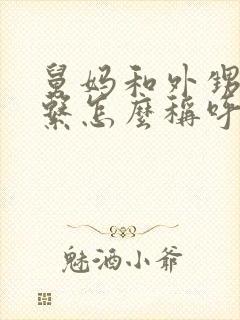 舅妈和外甥
繫怎麼稱呼
魅酒小爷